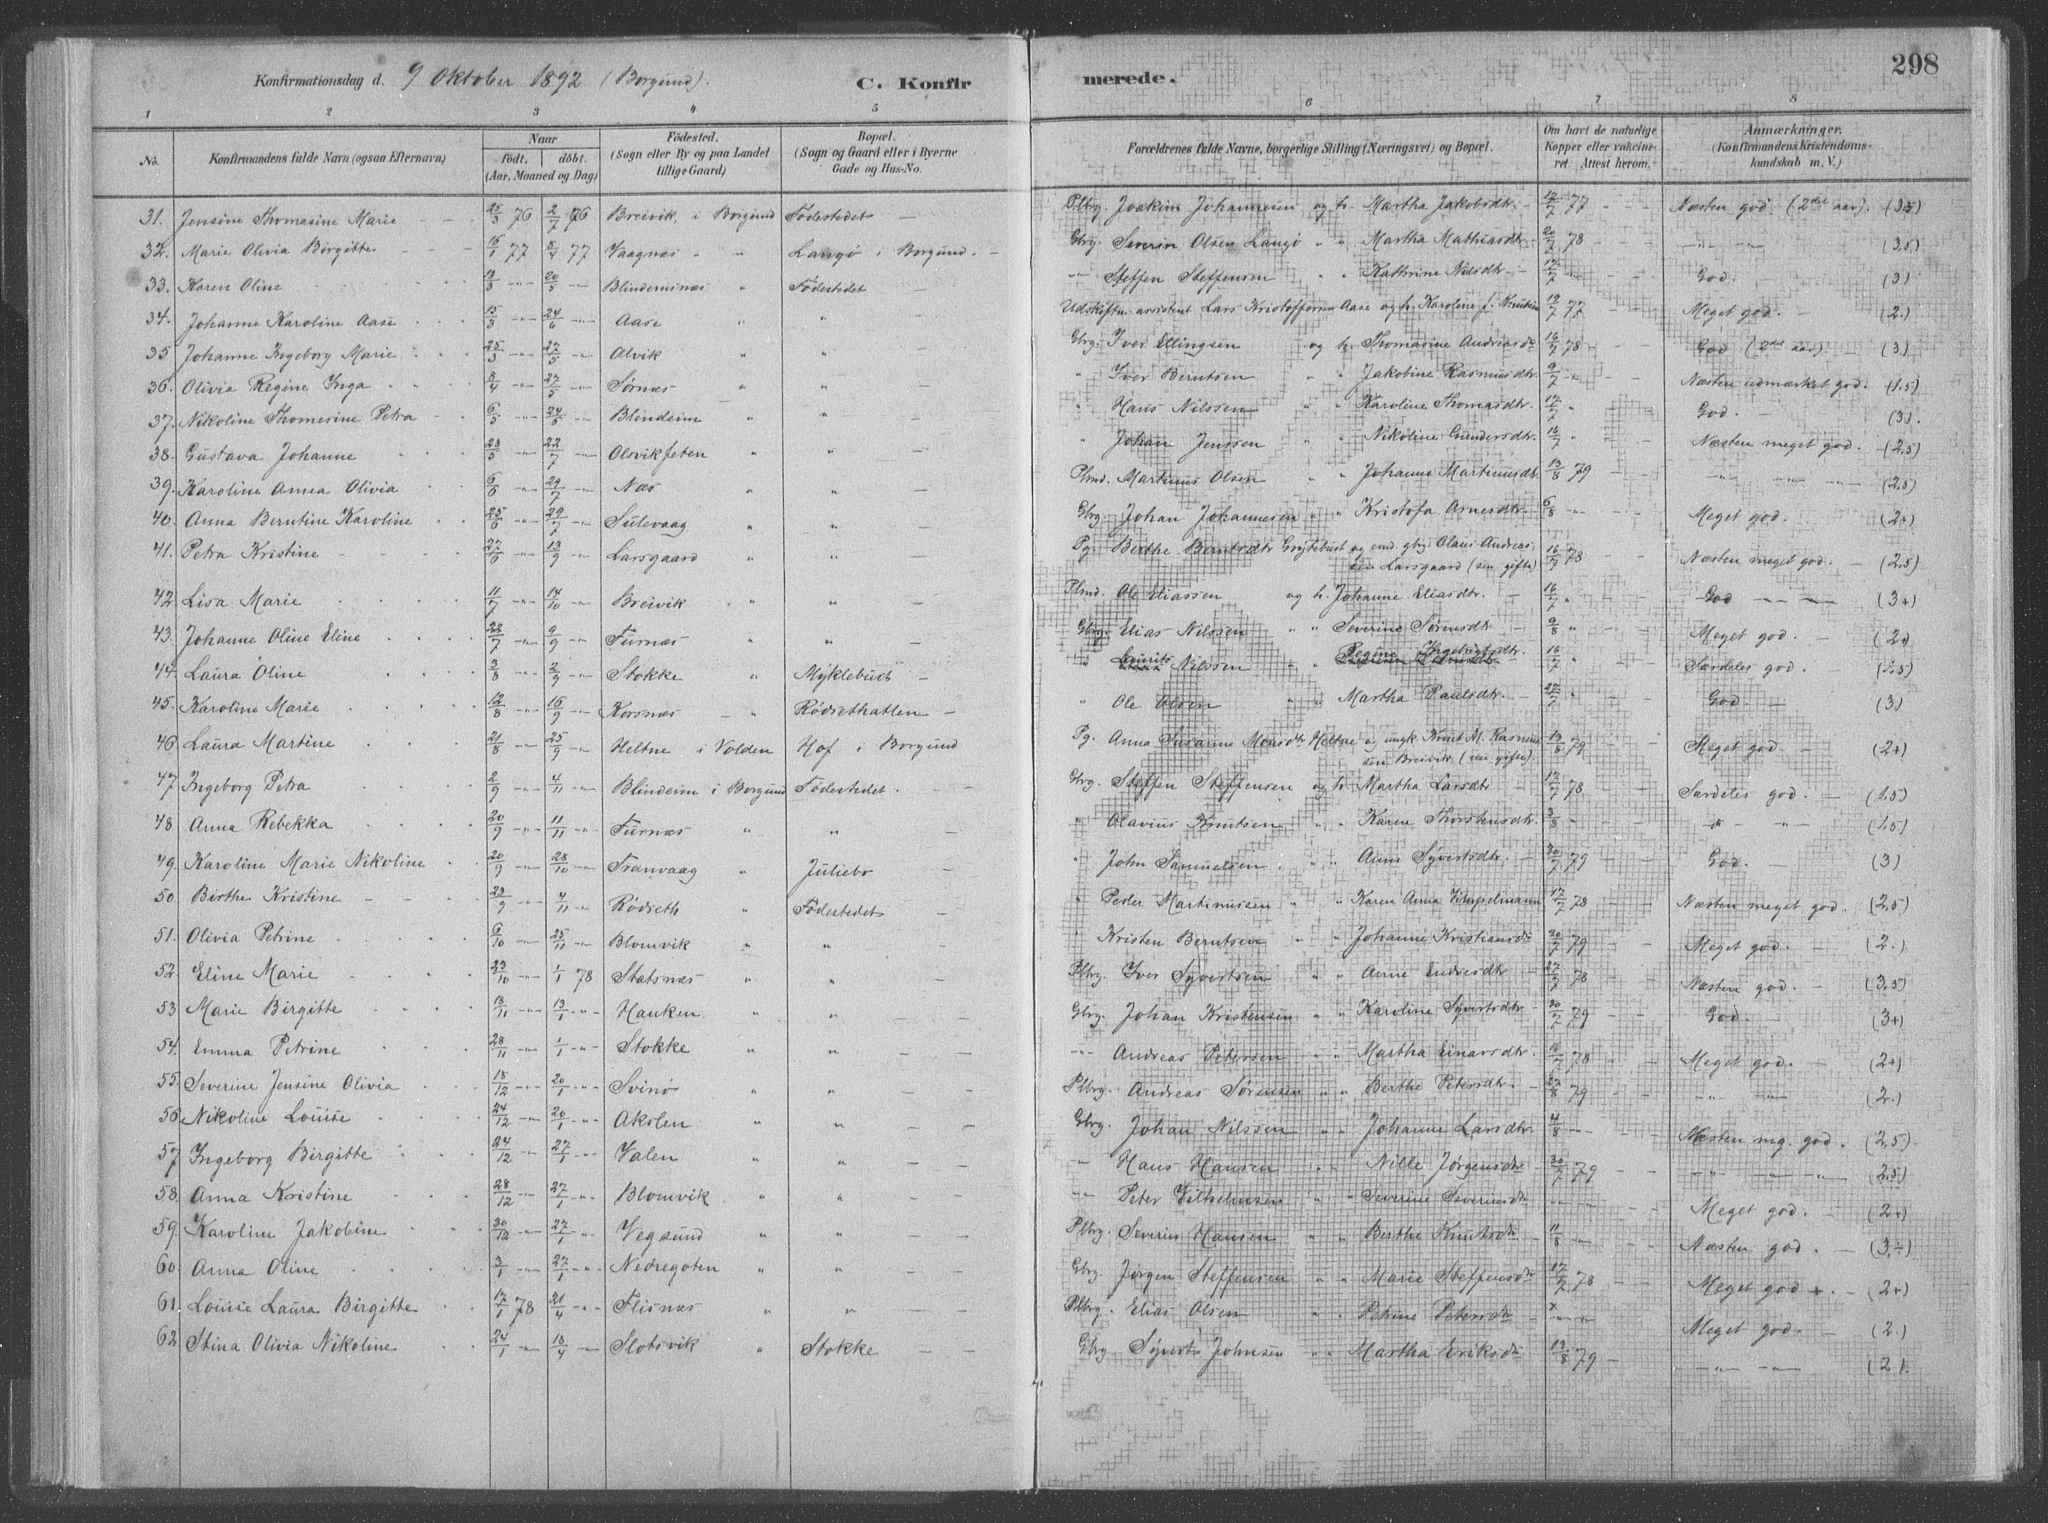 Konfirmationsdag d. 9 Oktober 1892 (Borgund). C. Konfirmerede. 298
1 2 3 4 5 6 7 8
No. Konfirmandens fulde Navn (ogsaa Efternavn) Naar født. døbt. (Aar, Maaned og Dag) Fødested. (Sogn eller By og paa Landet tillige Gaard) Bopæl. (Sogn og Gaard eller i Byerne Gade og Hus-No. Forældrenes fulde Navne, borgerlige Stilling (Næringsvei) og Bopæl. Om havt de naturlige Kopper eller vakcineret. Attest herom. Anmærkninger. (Konfirmandens Kristendomskundskab m. V.)
31. Jensine Thomasine Marie 25/3 76 2/7 76 Breivik i Borgund Fødestedet Plbrg. Joakim Johannesen og h. Martha Jakobsdtr. 17/7 77 Næsten god (2det aar). (3.5)
32. Marie Olivia Birgitte 15/1 77 5/4 77 Vaagnæs " Langø i Borgund. Gbrg. Severin Olsen Langø " " Martha Mathiasdtr. 20/7 78 -"- -"- (3.5)
33. Karen Oline 13/3 -"- 20/5 -"- Blindemsnæs " Fødestedet -"- Steffen Steffensen " " Kathrine Nilsdtr. 17/7 -"- God. (3)
34. Johanne Karoline Aase 15/3 -"- 24/6 -"- Aase " " Udskiftn. assistent Lars Kristoffersen Aase og h. Karoline f. Knutsen 19/7 77 Meget god. (2.)
35 Johanne Ingeborg Marie 25/3 -"- 27/5 -"- Alvik " " Gbrg. Iver Ellingsen og h. Thomasine Andreasdtr 16/7 78 God (2det aar). (3)
36. Olivia Regine Inga 8/4 -"- 27/5 -"- Sørnæs " " " Iver Berntsen " " Jakobine Rasmusdtr. 9/7 -"- Næsten udmærket god. (1.5)
37. Nikoline Thomesine Petra 6/5 -"- 24/5 -"- Blindeim " " " Hans Nilssen " " Karoline Thomasdtr. 17/7 " God. (3).
38. Gustava Johanne 28/5 -"- 22/7 -"- Olsvikfeten " " " Johan Jenssen " " Nikoline Gundersdtr. 16/7 " Næsten meget god. (2,5)
39. Karoline Annea Olivia 6/6 -"- 29/7 -"- Næs " " Plmd. Martinus Olsen " " Johanne Martinusdtr. 13/8 79 -"- -"- -"- (2,5)
40. Anna Berntine Karoline 25/6 -"- 29/7 -"- Sulevaag " " Gbrg. Johan Johannesen " " Kristofa Arnesdtr. 6/8 -"- Meget god. (2+)
41. Petra Kristine 27/6 -"- 13/9 -"- Larsgaard " " Pg. Berthe Berntsdtr Grytebust og emd. gbrg. Olaus Andreas-
sen Larsgaard (sen. gifte) 16/7 78 Næsten meget god. (2,5)
42 Lisa Marie 11/7 -"- 14/10 -"- Breivik " " Plmd. Ole Eliassen og h. Johanne Eliasdtr. 16/7 " God -"- -"- (3+)
43. Johanne Oline Eline 22/7 -"- 9/9 -"- Furnæs " " Gbrg. Elias Nilssen " " Severine Sørensdtr 9/8 " Meget god. (2.)
44. Laura Oline 3/8 -"- 2/9 -"- Stokke " Myklebust " Laurits Nilssen " " Regine Ingebrigtsdtr. 16/7 " Særdeles god. (1,5)
45. Karoline Marie 12/8 -"- 16/9 -"- Korsnæs " Rødsethatlen " Ole Olsen " " Martha Paulsdtr. 27/7 " God. (3)
46 Laura Martine 21/8 -"- 25/9 -"- Heltne i Volden Hof i Borgund Pg. Anna Susanna Monsdtr Heltne og ungk. Knut M. Rasmus-
sen Breivik (sen. gifte). 13/8 79 Meget god (2+)
47 Ingeborg Petra 2/9 -"- 4/11 -"- Blindeim i Borgund Fødestedet. Gbrg. Steffen Steffensen og h. Martha Larsdtr 17/7 78 Særdeles god. (1,5)
48 Anna Rebekka 20/9 -"- 11/11 -"- Furnæs " " " Olavius Knutsen " " Karen Thorstensdtr. 3/8 " -"- -"- (1,5)
49. Karoline Marie Nikoline 20/9 -"- 28/10 -"- Tranvaag " Juliebø " John Samuelsen " " Anne Syvertsdtr. 30/7 79 God. (3)
50. Birthe Kristine 23/9 -"- 4/11 -"- Rødseth " Fødestedet " Peder Martinussen " " Karen Anna Timpelmann 17/7 78 Næsten meget god. (2,5)
51. Olivia Petrine 6/10 -"- 25/11 -"- Blomvik " " " Kristen Berntsen " " Johanne Kristiansdtr 30/7 79 Meget god. (2.)
52. Eline Marie 23/10 -"- 1/1 78 Statsnæs " " Plbrg. Iver Syvertsen " " Anne Endresdtr 27/7 78 Næsten god. (3,5)
53 Marie Birgitte 18/11 -"- 13/1 -"- Hauken " " Gbrg. Johan Kristensen " " Karoline Syvertsdtr 30/7 79 God. (3+)
54. Emma Petrine 28/11 -"- 1/1 -"- Stokke " " -"- Andreas Petersen " " Martha Einarsdtr. 16/7 78 Meget god. (2+)
55. Severine Jensine Olivia 18/12 -"- 20/1 -"- Svinø " " Plbrg. Andreas Sørensen " " Berthe Petersdtr. 27/8 79 -"- -"- (2.)
56 Nikoline Louise 24/12 -"- 20/1 -"- Akslen " " Gbrg. Johan Nilssen " " Johanne Larsdtr. 4/8 -"- Næsten mg. god. (2,5)
57 Ingeborg Birgitte 24/12 -"- 27/1 -"- Valen " " " Hans Hansen " " Nille Jørgensdtr 30/7 79 -"- -"- -"- (2,5)
58. Anna Kristine 28/12 -"- 27/1 -"- Blomvik " " -"- Peter Vilhelmsen " " Severine Severinsdtr -"- -"- Meget god. (2+)
59. Karoline Jakobine 30/12 -"- 27/1 -"- Vegsund " " Plbrg. Severin Hansen " " Berthe Knutsdtr 11/8 -"- Næsten god. (3,÷)
60. Anna Oline 3/1 -"- 27/1 -"- Nedregoten " " Gbrg. Jørgen Steffensen " " Marie Steffensdtr 17/7 78 Meget god +. (2+)
61. Louise Laura Birgitte 17/1 78 21/4 -"- Flisnæs " " Plbrg. Elias Olsen " Petrine Petersdtr -"- -"- Meget god. (2.)
62 Stina Olivia Nikoline 24/1 -"- 18/4 -"- Slotsvik " Stokke Gbrg. Syvert Johnsen " " Martha Eriksdtr 13/8 79 -"- -"- (2).